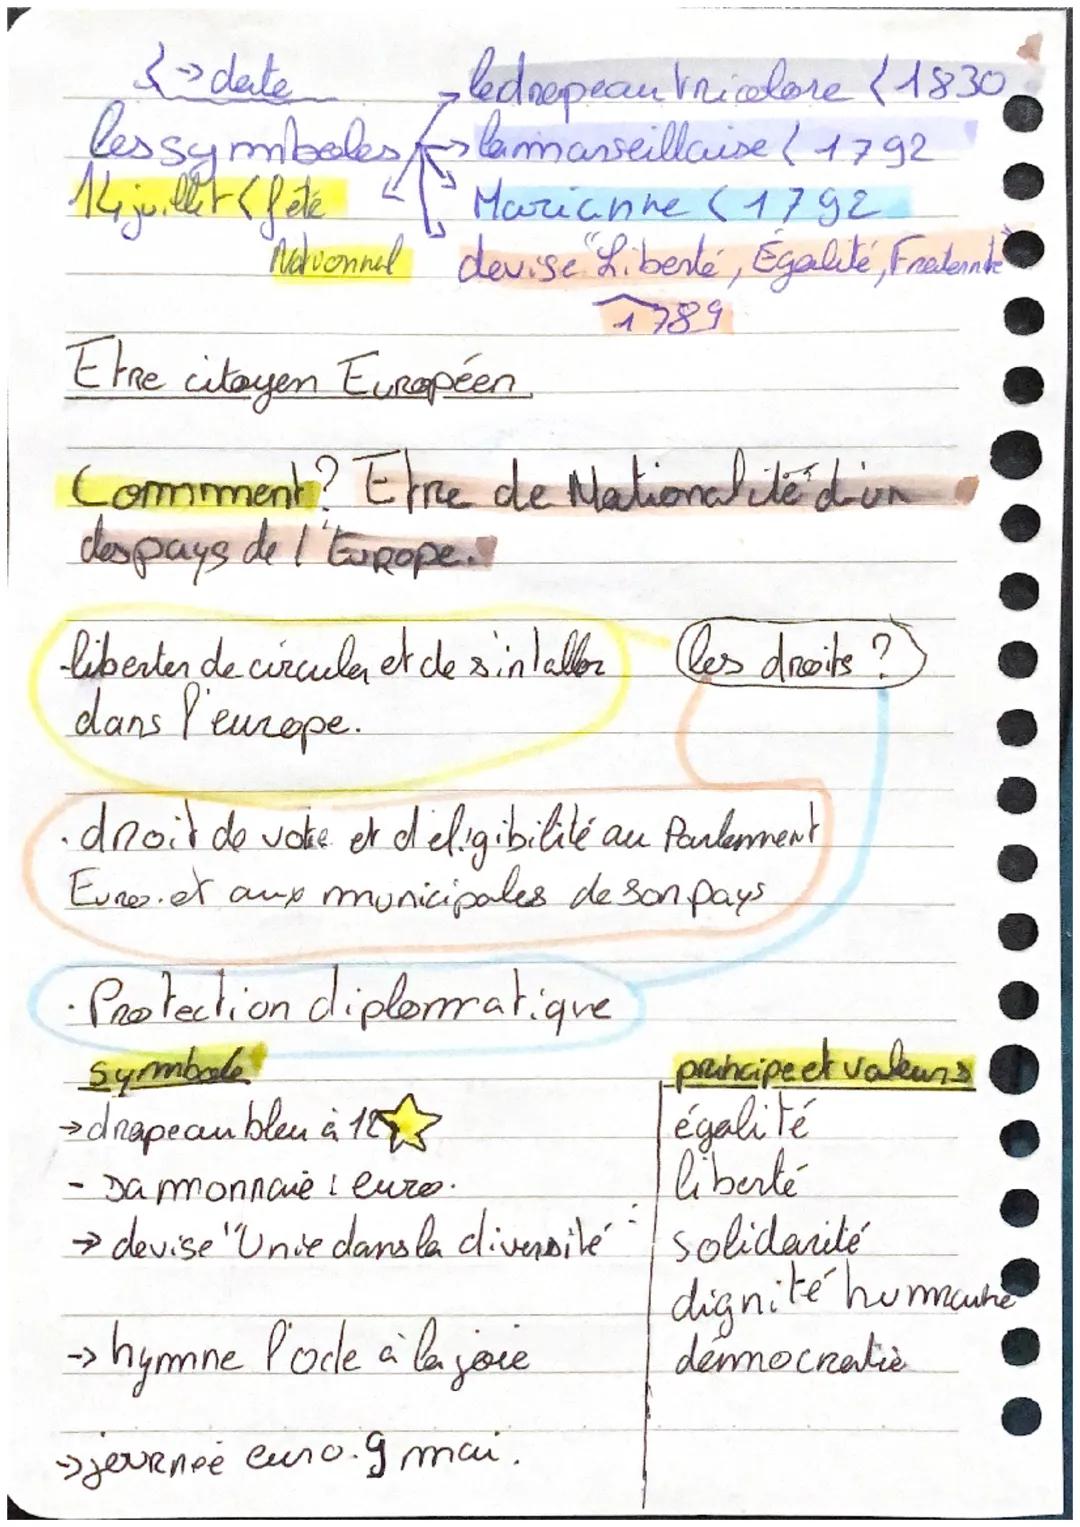 { → date
le drapeau tricolore { 1830
les symboles → la marseillaise { 1792
14 juillet { fêté Marianne { 1792
Nationnul devise "Liberté, Égalité, Fraternité"
1789
Etre citoyen Européen
Commment? Etre de Nationalité d'un
des pays de l'Europe.
-liberter de circuler et de s'intaller les droits ?
dans l'europe.
. droit de vote et d'eligibilité au Parlemment
Euro. et aux municipales de son pays
. Protection diplomatique
symbole principe et valeurs
→ drapeau bleu à 12 égalité
- sa monnaie : euro. liberté
→ devise "Unie dans la diversité" solidarité
dignité humaine
→ hymne l'ode à la joie démocratie
→ journée euro. 9 mai.